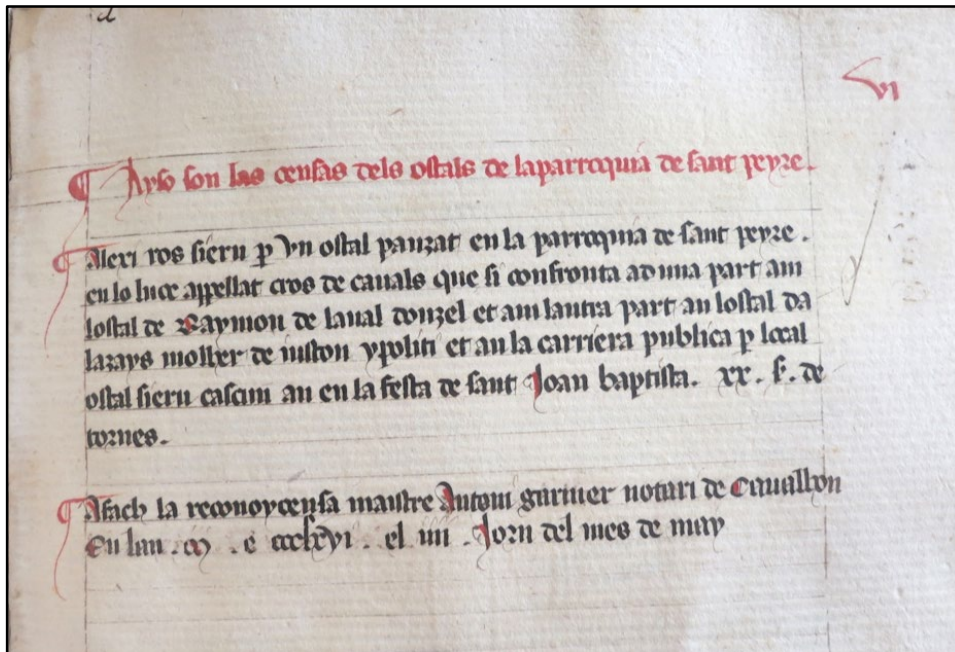 vi
¶ Ayso son las censas dels ostals de laparroquia de sant peyre.
¶ Alexi ros sieru p vn ostal pauzat en la parroquia de sant peyre.
en lo luec appellat cros de cauals que si confronta ab una part am
lostal de Raymon de laual donzel et am lautra part an lostal da
lazays molher de ypoliti et an la carriera publica p local
ostal sieru cascun an en la festa de sant Joan baptista. xx. s. de
tornes.
¶ Afach la reconoycensa maistre Antoni garnier notari de Cauallon
En lan . m . e ccclxvi . el iiii . Jorn del mes de may